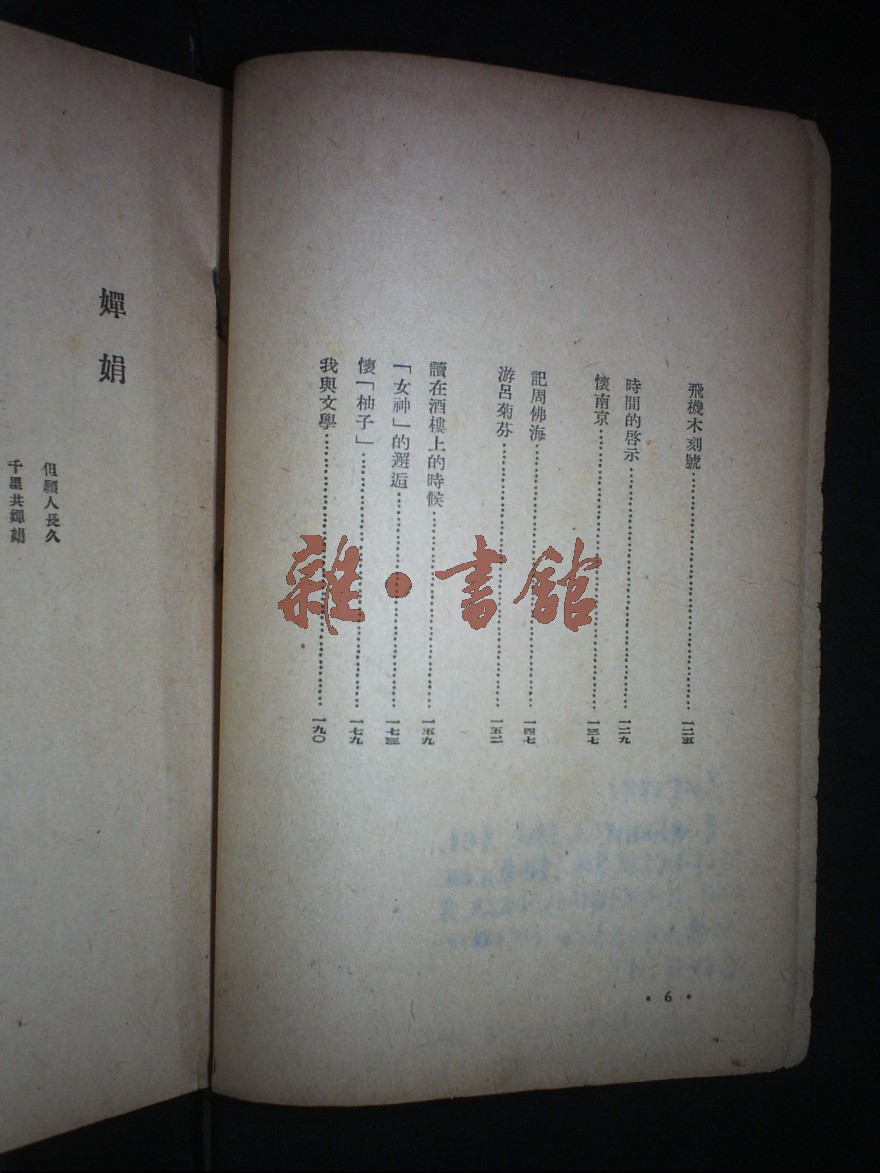 飛機木刻號……一二五
時間的啓示……一二九
懷南京……一三七
記周佛海……一四七
游呂菊芬……一五二
讀在酒樓上的時候……一五九
「女神」的邂逅……一七三
懷「柚子」……一七九
我與文學……一九〇
• 6 •
嬋娟
但願人長久
千里共嬋娟
雜·書館